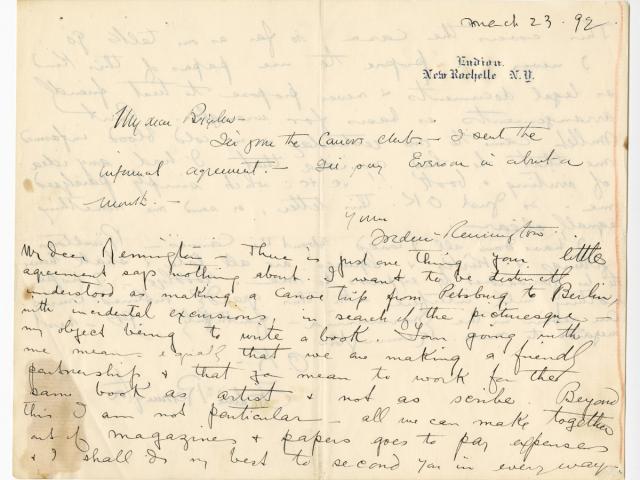 March 23. 92
Endion.
New Rochelle N.Y.
My dear Bigelow—
I'll join the Canoe club.— I sent the
informal agreement.— I'll pay Everson in about a
month.—
Yours
Frederic Remington
My dear Remington — There is just one thing your little
agreement says nothing about. I want to be distinctly
understood as making a canoe trip from Petsburg to Berlin,
with incidental excursions, in search of the picturesque —
my object being to write a book. Your going with
me means equally that we are making a friendly
partnership & that you mean to work for the
same book as artist & not as scribe. Beyond
this I am not particular — all we can make together
out of magazines & papers goes to pay expenses
& I shall do my best to second you in every way —